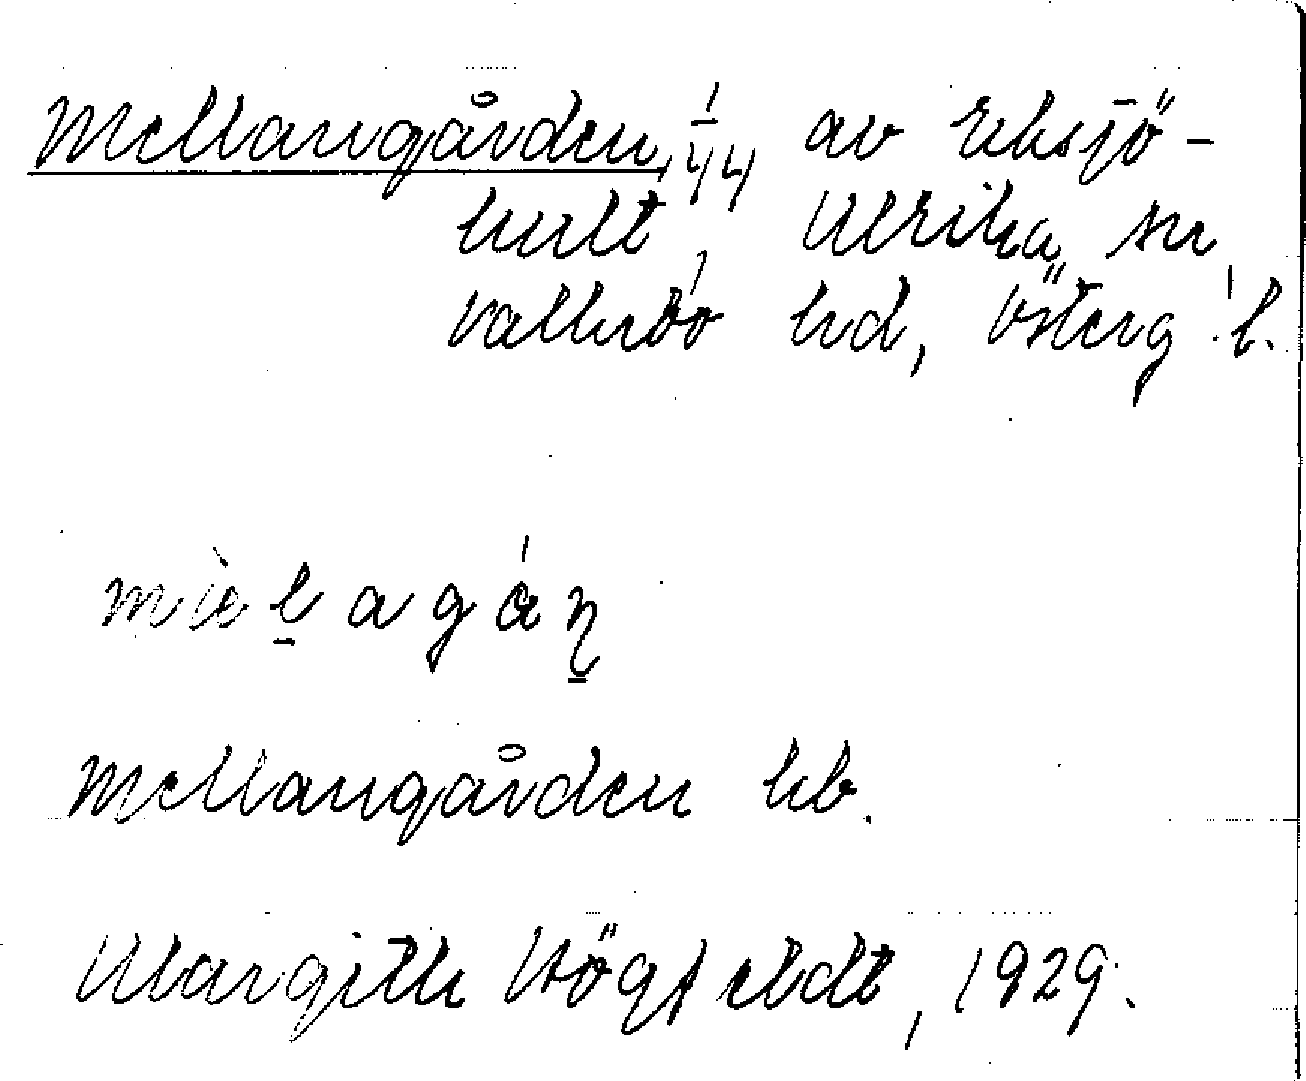 Mellangården, 1/44 av Eksjö-
hult, Ulrika sn,
Valkebo hd, Österg. l.
Mellangården kb.
Margith Högfeldt, 1929.